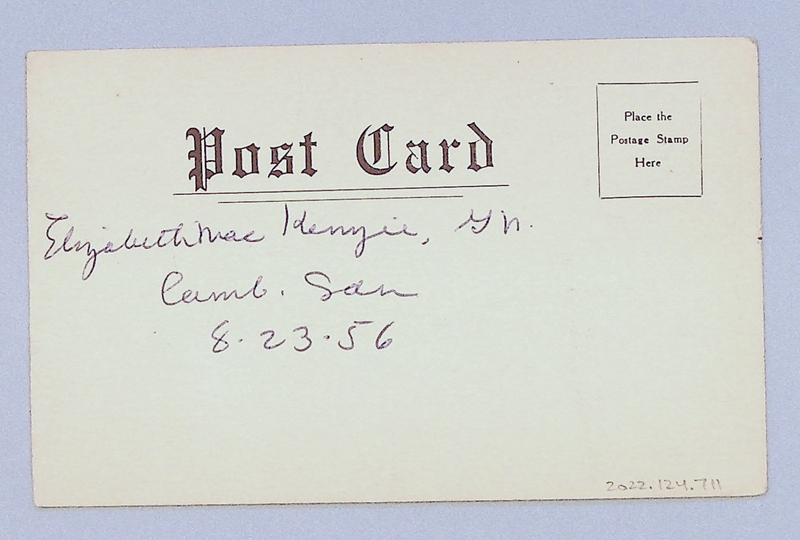 Post Card
Place the
Postage Stamp
Here
Elizabeth Mac Kenzie, G.N.
Camb. San
8.23.56
2022.124.711